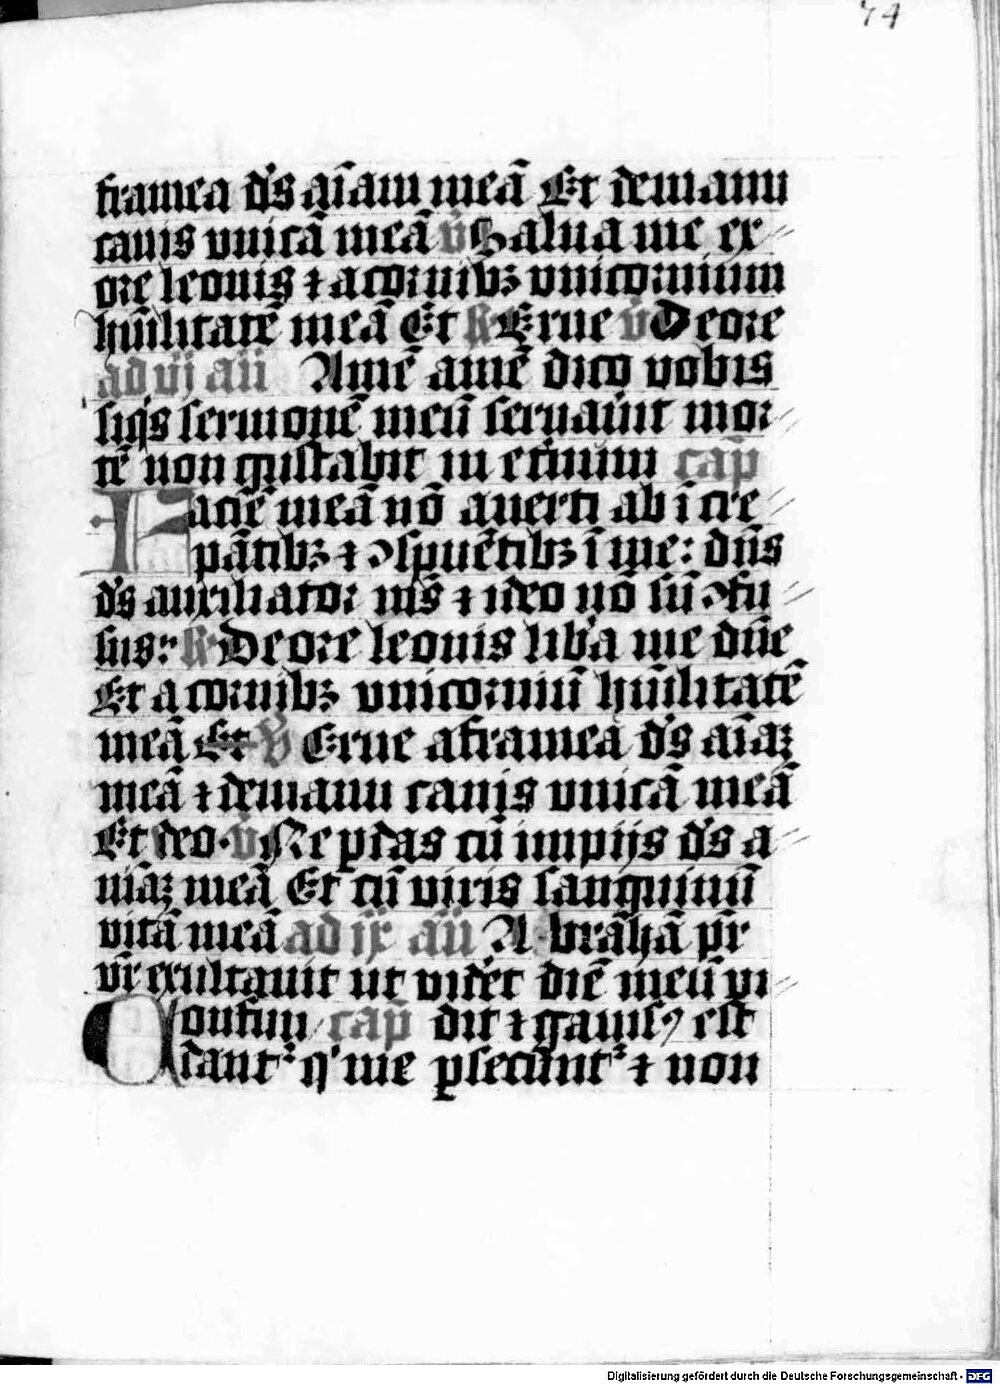 74
framea d's aīam meā Et demanu
canis vnicā meā v̄ Salua me ex
ore leonis ⁊ a cornibꝫ vnicornium
hūilitatē meā Et R Erue v̄ De ore
ad vij aū Amē amē dico vobis
siq's sermonē meū seruau'it mor
tē non gustabit in et'nnum cap
Faciē meā nō auerti ab īcre
pātibꝫ ⁊ ↄspuētibꝫ ī me: dn̄s
d's auxiliator m's ⁊ ideo nō sū ↄfu
sus: R De ore leonis lib'a me dn̄e
Et a cornibꝫ vnicorniū hūilitatē
meā Et v̄ Erue aframea d's aīaꝫ
meā ⁊ demanu canis vnicā meā
Et deo. v̄ Ne p̱das cū impijs d's a
nīaꝫ meā Et cū viris sanguinū
vitā meā ad ix aū Abrāhā pr̄
vr̄ exultauit ut vid'et diē meū vi
Confun cap dit ⁊ gauisꝯ est
dant' q' me p̱secūnt' ⁊ non
Digitalisierung gefördert durch die Deutsche Forschungsgemeinschaft - DFG